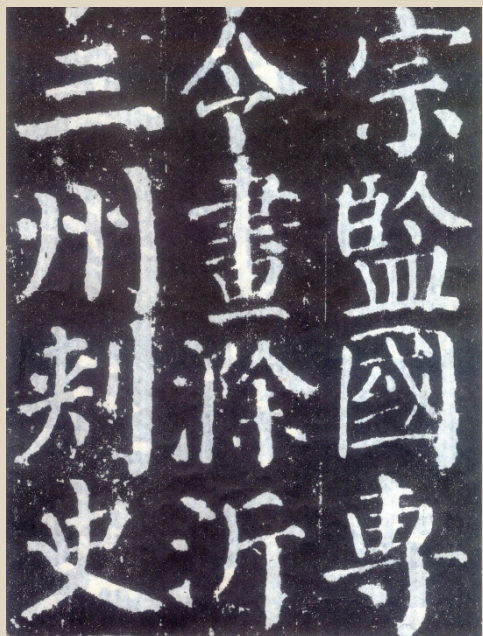 宗監國專
令畫滁沂
三州刺史